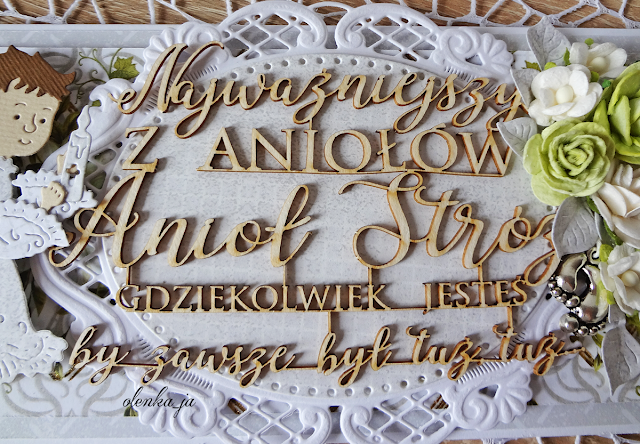 Najważniejszy
z ANIOŁÓW
Anioł Stróż
GDZIEKOLWIEK JESTEŚ
by zawsze był tuż tuż
olenka_ja